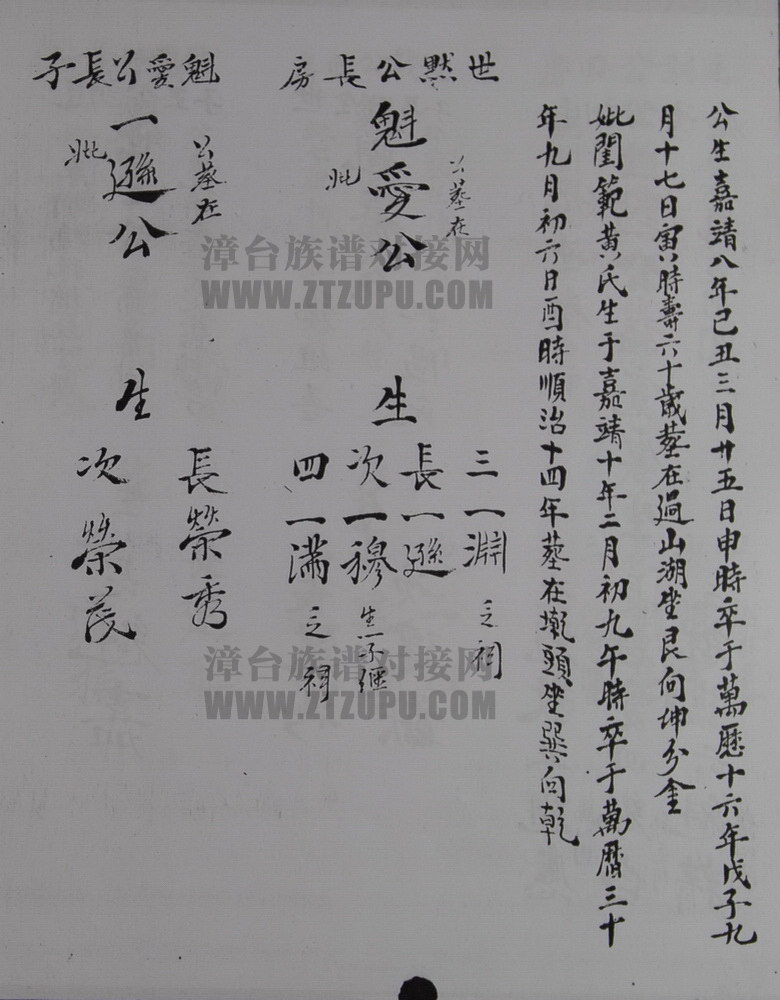 公生嘉靖八年己丑三月廿五日申時卒于萬歷十六年戊子九
月十七日寅時壽六十歲墓在過山湖坐艮向坤分金
妣閨範黃氏生于嘉靖十年二月初九午時卒于萬曆三十
年九月初六日酉時順治十四年墓在墘頭坐巽向乾
世黙公長房
公墓在
魁愛公
妣
生
三一淵之祠
長一遜
次一穆生子繼
四一滿之祠
魁愛公長子
公墓在
一遜公
妣
生
長榮秀
次榮茂
漳台族谱对接网
WWW.ZTZUPU.COM
漳台族谱对接网
WWW.ZTZUPU.COM